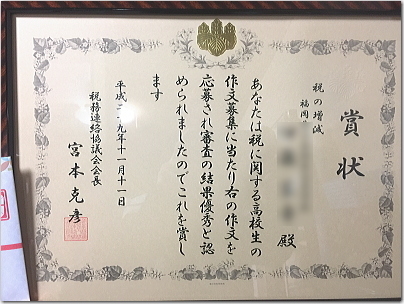 賞状
税の増減
福岡
殿
あなたは税に関する高校生の
作文募集に当たり右の作文を
応募され審査の結果優秀と認
められましたのでこれを賞し
ます
平成二九年十一月十一日
税務連絡協議会会長
宮本克彦